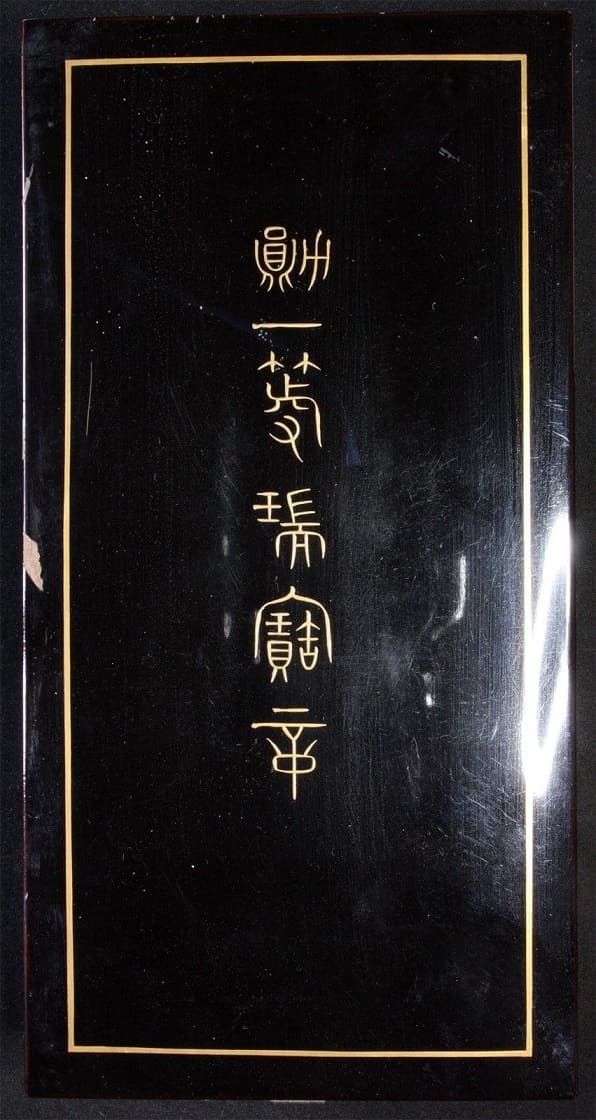 勲一等瑞寶章